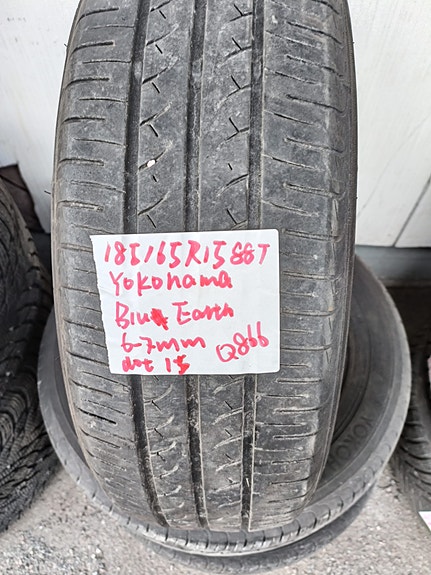 185/65R15 88T
Yokohama
Blue Earth
6-7mm
dot 15 Q866
YOKO